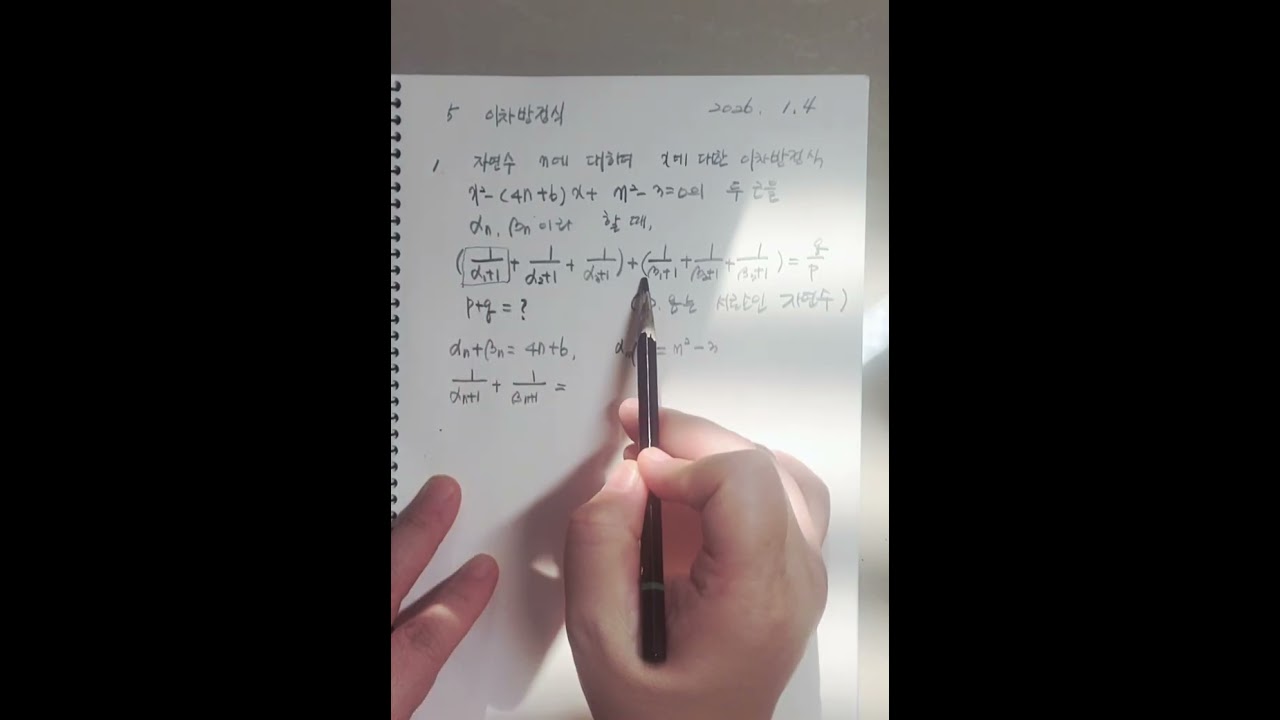 5 이차방정식 2026. 1.4
1. 자연수 n에 대하여 x에 대한 이차방정식
x²-(4n+6)x+ n²-3=0의 두 근을
αn, βn이라 할 때,
(1/(α₁+1) + 1/(α₂+1) + 1/(α₃+1)) + (1/(β₁+1) + 1/(β₂+1) + 1/(β₃+1)) = q/p
p+q = ? (p, q는 서로소인 자연수)
αn+βn = 4n+6, α = n²-3
1/(αn+1) + 1/(βn+1) =